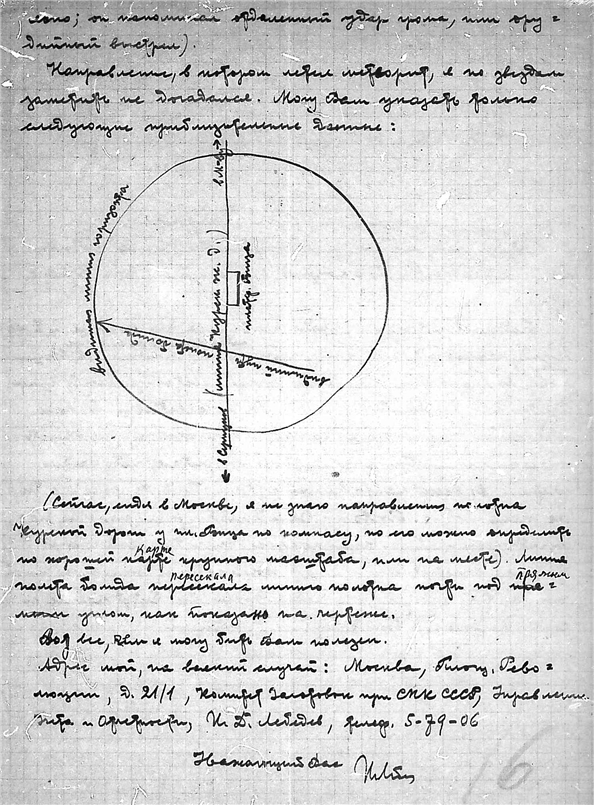 лено; он напоминал отдаленный удар грома, или ору=
дийный выстрел).
Направление, в котором летел метеорит, я по звездам
заметить не догадался. Могу Вам указать только
следующие приблизительные данные:
в М-ву →
видимая линия горизонта
(линия Курск. ж. д.)
платф. Битца
видимый путь полета болида
← в Серпухов
(Сейчас, сидя в Москве, я не знаю направления полотна
Курской дороги у пл. Битца по компасу, но его можно определить
по хорошей карте крупного масштаба, или на месте). Линия
карте
полета болида пересекала линию полотна почти под пря=
пересекала
прямым
мым углом, как показано на чертеже.
Вот все, чем я могу быть Вам полезен.
Адрес мой, на всякий случай: Москва, Площ. Рево=
люции, д. 21/1, Комитет Заготовок при СНК СССР, Управление
Учета и Отчетности, И. Д. Лебедев, телеф. 5-79-06
Уважающий Вас
16